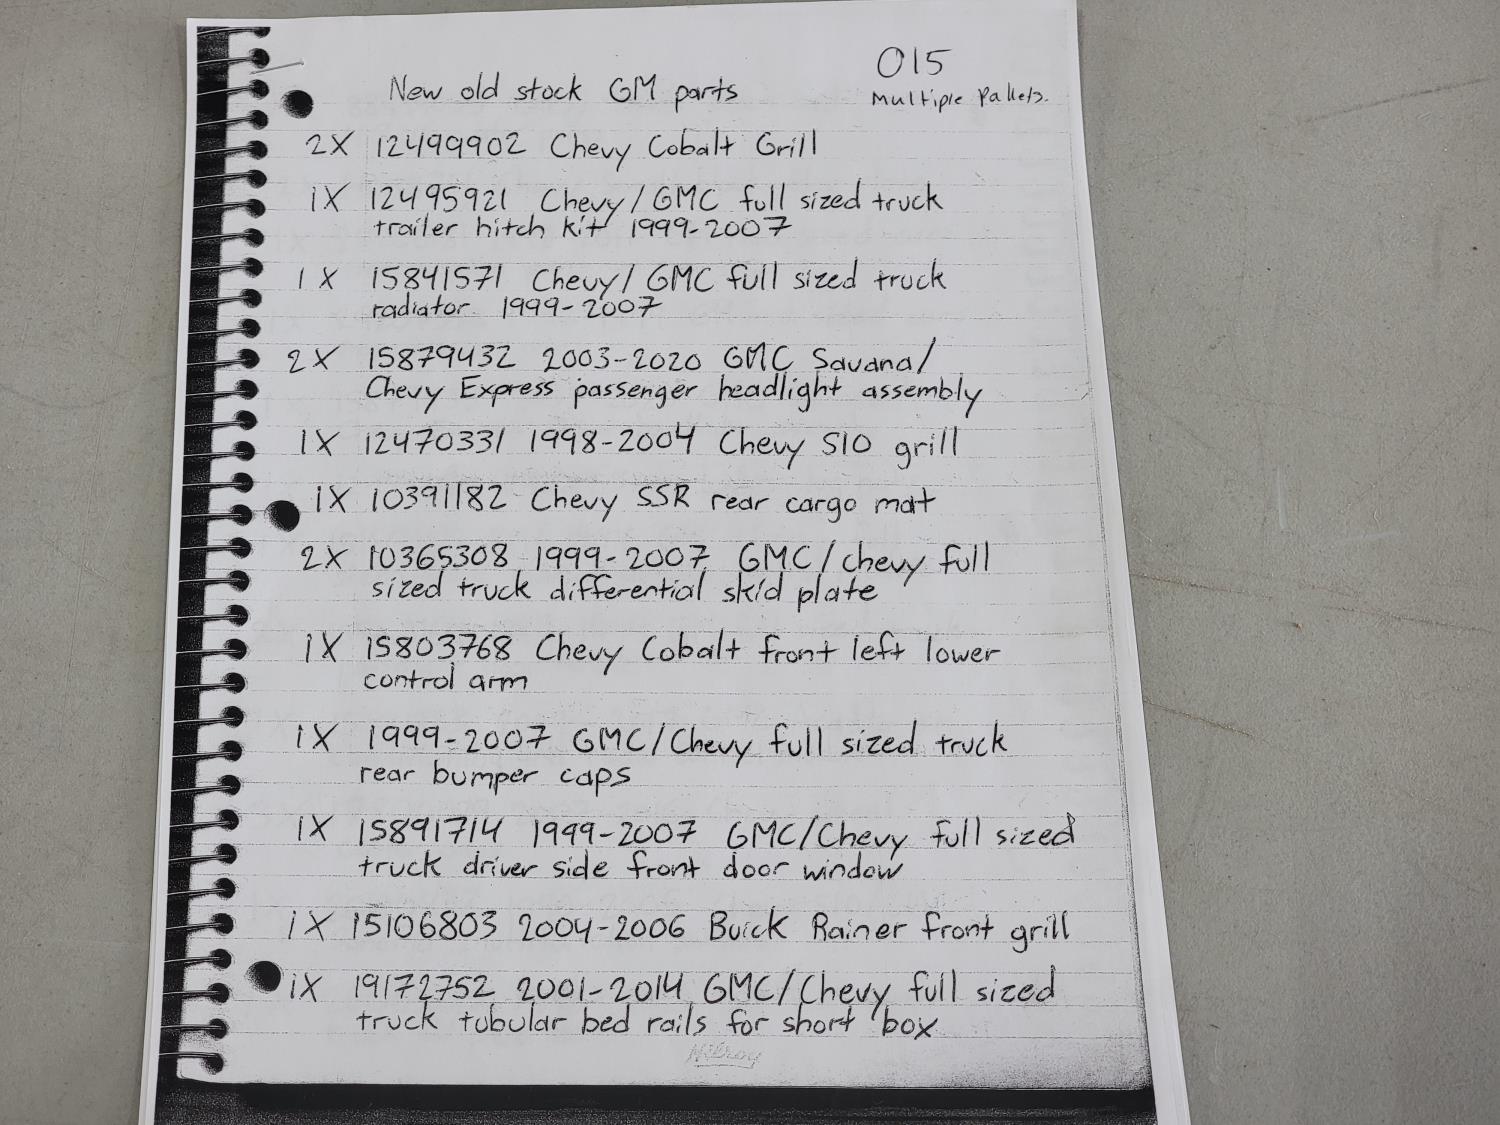 015
New old stock GM parts
Multiple Pallets.
2X 12499902 Chevy Cobalt Grill
1X 12495921 Chevy/GMC full sized truck
trailer hitch kit 1999-2007
1X 15841571 Chevy/GMC full sized truck
radiator 1999-2007
2X 15879432 2003-2020 GMC Savana/
Chevy Express passenger headlight assembly
1X 12470331 1998-2004 Chevy S10 grill
1X 10391182 Chevy SSR rear cargo mat
2X 10365308 1999-2007 GMC/chevy full
sized truck differential skid plate
1X 15803768 Chevy Cobalt front left lower
control arm
1X 1999-2007 GMC/Chevy full sized truck
rear bumper caps
1X 15891714 1999-2007 GMC/Chevy full sized
truck driver side front door window
1X 15106803 2004-2006 Buick Rainer front grill
1X 19172752 2001-2014 GMC/Chevy full sized
truck tubular bed rails for short box
Hilroy